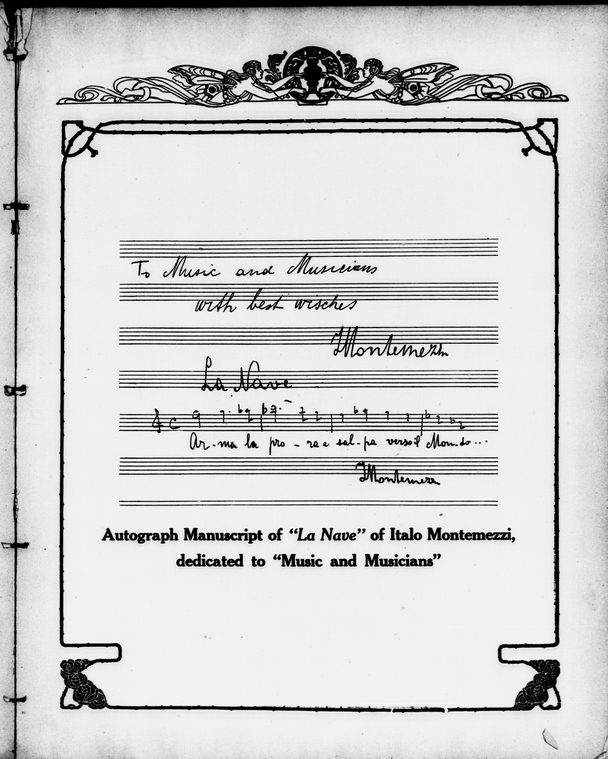 To Music and Musicians
with best wisches
IMontemezzi
La Nave
Ar-ma la pro-ra e sal-pa verso il Mon-do...
IMontemezzi
Autograph Manuscript of "La Nave" of Italo Montemezzi,
dedicated to "Music and Musicians"